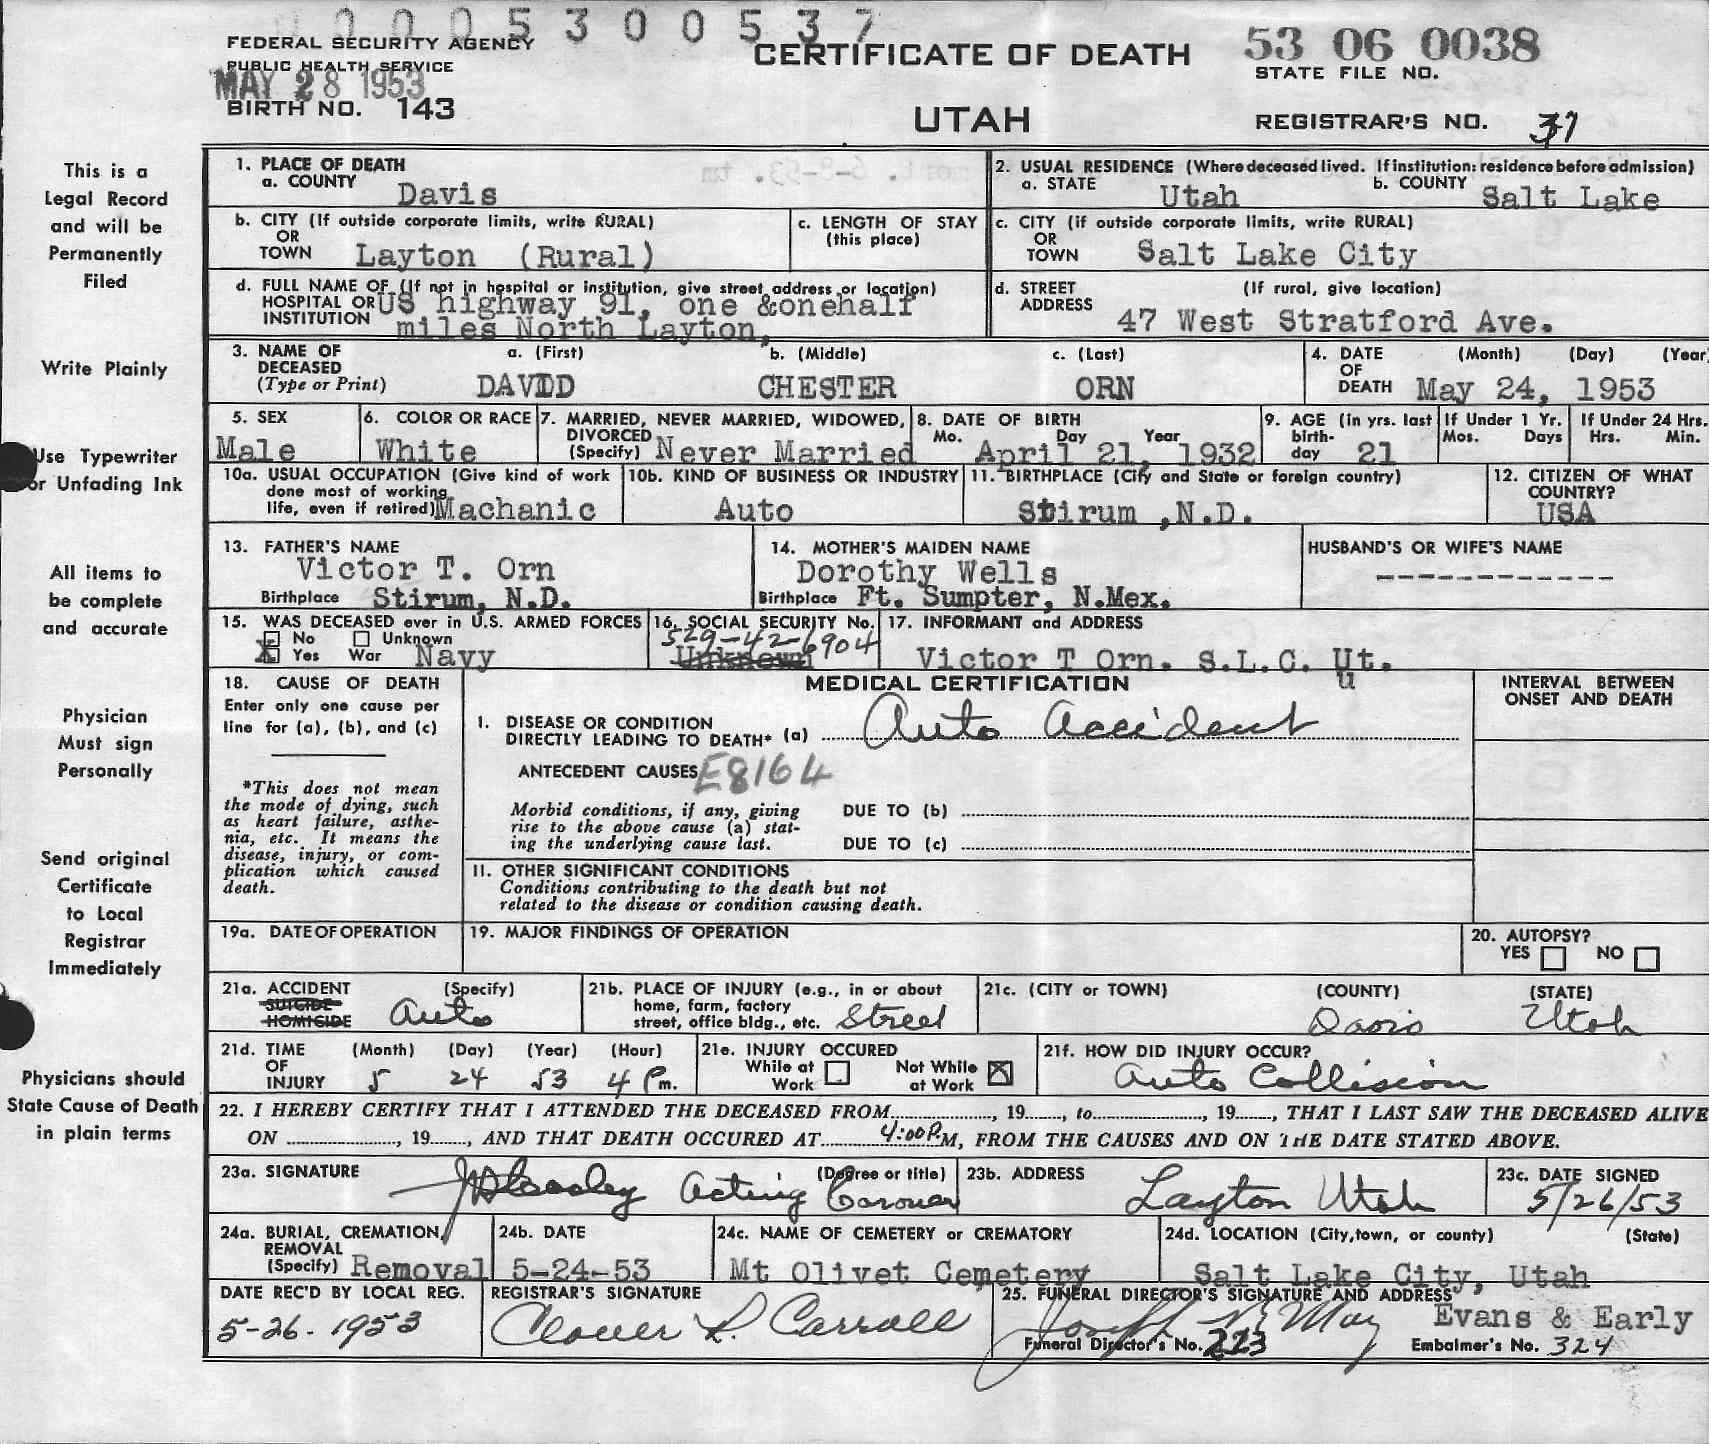 0005300537
FEDERAL SECURITY AGENCY
PUBLIC HEALTH SERVICE
MAY 28 1953
BIRTH NO. 143
CERTIFICATE OF DEATH
UTAH
53 06 0038
STATE FILE NO.
REGISTRAR'S NO. 37
This is a
Legal Record
and will be
Permanently
Filed
Write Plainly
Use Typewriter
or Unfading Ink
All items to
be complete
and accurate
Physician
Must sign
Personally
Send original
Certificate
to Local
Registrar
Immediately
Physicians should
State Cause of Death
in plain terms
1. PLACE OF DEATH
a. COUNTY Davis
2. USUAL RESIDENCE (Where deceased lived. If institution: residence before admission)
a. STATE Utah b. COUNTY Salt Lake
b. CITY (If outside corporate limits, write RURAL)
OR
TOWN Layton (Rural)
c. LENGTH OF STAY
(this place)
c. CITY (if outside corporate limits, write RURAL)
OR
TOWN Salt Lake City
d. FULL NAME OF (If not in hospital or institution, give street address or location)
HOSPITAL OR US highway 91, one &onehalf
INSTITUTION miles North Layton,
d. STREET (If rural, give location)
ADDRESS 47 West Stratford Ave.
3. NAME OF a. (First) b. (Middle) c. (Last)
DECEASED
(Type or Print) DAVID CHESTER ORN
4. DATE (Month) (Day) (Year
OF
DEATH May 24, 1953
5. SEX
Male
6. COLOR OR RACE
White
7. MARRIED, NEVER MARRIED, WIDOWED,
DIVORCED
(Specify) Never Married
8. DATE OF BIRTH
Mo. Day Year
April 21, 1932
9. AGE (in yrs. last
birth-
day 21
If Under 1 Yr.
Mos. Days
If Under 24 Hrs.
Hrs. Min.
10a. USUAL OCCUPATION (Give kind of work
done most of working
life, even if retired) Machanic
10b. KIND OF BUSINESS OR INDUSTRY
Auto
11. BIRTHPLACE (City and State or foreign country)
Stirum ,N.D.
12. CITIZEN OF WHAT
COUNTRY?
USA
13. FATHER'S NAME
Victor T. Orn
Birthplace Stirum, N.D.
14. MOTHER'S MAIDEN NAME
Dorothy Wells
Birthplace Ft. Sumpter, N.Mex.
HUSBAND'S OR WIFE'S NAME
------------
15. WAS DECEASED ever in U.S. ARMED FORCES
No Unknown
X Yes War Navy
16. SOCIAL SECURITY No.
529-42-6904
Unknown
17. INFORMANT and ADDRESS
Victor T Orn. S.L.C. Ut.
u
18. CAUSE OF DEATH
Enter only one cause per
line for (a), (b), and (c)
*This does not mean
the mode of dying, such
as heart failure, asthe-
nia, etc. It means the
disease, injury, or com-
plication which caused
death.
MEDICAL CERTIFICATION
I. DISEASE OR CONDITION
DIRECTLY LEADING TO DEATH* (a) Auto Accident
ANTECEDENT CAUSES E8164
Morbid conditions, if any, giving
rise to the above cause (a) stat-
ing the underlying cause last.
DUE TO (b)
DUE TO (c)
II. OTHER SIGNIFICANT CONDITIONS
Conditions contributing to the death but not
related to the disease or condition causing death.
INTERVAL BETWEEN
ONSET AND DEATH
19a. DATE OF OPERATION
19. MAJOR FINDINGS OF OPERATION
20. AUTOPSY?
YES NO
21a. ACCIDENT (Specify)
SUICIDE
HOMICIDE Auto
21b. PLACE OF INJURY (e.g., in or about
home, farm, factory
street, office bldg., etc. Street
21c. (CITY or TOWN) (COUNTY) (STATE)
Davis Utah
21d. TIME (Month) (Day) (Year) (Hour)
OF
INJURY 5 24 53 4 Pm.
21e. INJURY OCCURED
While at Work Not While at Work X
21f. HOW DID INJURY OCCUR?
Auto Collision
22. I HEREBY CERTIFY THAT I ATTENDED THE DECEASED FROM............, 19......, to............, 19......, THAT I LAST SAW THE DECEASED ALIVE
ON ............, 19......, AND THAT DEATH OCCURED AT 4:00 P.M, FROM THE CAUSES AND ON THE DATE STATED ABOVE.
23a. SIGNATURE (Degree or title)
Acting Coroner
23b. ADDRESS
Layton Utah
23c. DATE SIGNED
5/26/53
24a. BURIAL, CREMATION,
REMOVAL
(Specify) Removal
24b. DATE
5-24-53
24c. NAME OF CEMETERY OR CREMATORY
Mt Olivet Cemetery
24d. LOCATION (City, town, or county) (State)
Salt Lake City, Utah
DATE REC'D BY LOCAL REG.
5-26-1953
REGISTRAR'S SIGNATURE
Clover R. Carroll
25. FUNERAL DIRECTOR'S SIGNATURE AND ADDRESS
Joseph May Evans & Early
Funeral Director's No. 223 Embalmer's No. 324